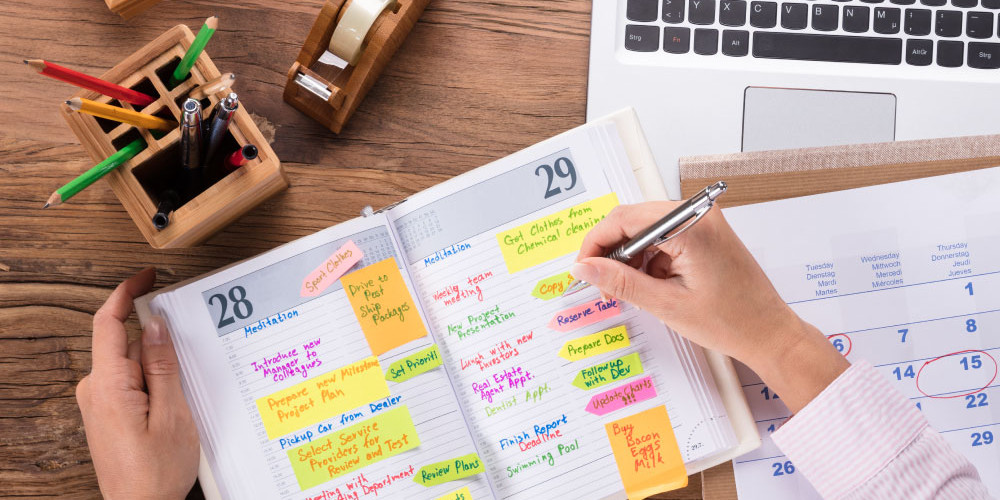 Y X C V B N M
Strg Fn Alt Alt Gr Strg
28
Meditation
Sport Clothes
Drive to
Post
Ship
Packages
Introduce New
Manager to
colleagues
Set Prioriti
Prepare new Milestone
Project Plan
Pickup Car from Dealer
Select Service
Providers for
Review and Test
Review Plans
Meeting with
Marketing Department
29
Meditation
Get Clothes from
Chemical cleaning
Weekly team
meeting
Copy
New Project
Presentation
Reserve Table
Lunch with new
Investors
Prepare Docs
Real Estate
Agent Appt.
Follow up
with Dev
Dentist Appt.
Update Charts
Finish Report
Deadline
Swimming Pool
Buy
Bacon
Eggs
Milk
Tuesday
Dienstag
Mardi
Wednesday
Mittwoch
Mercredi
Thursday
Donnerstag
Jeudi
1
6 7 8
14 15
22
26 29